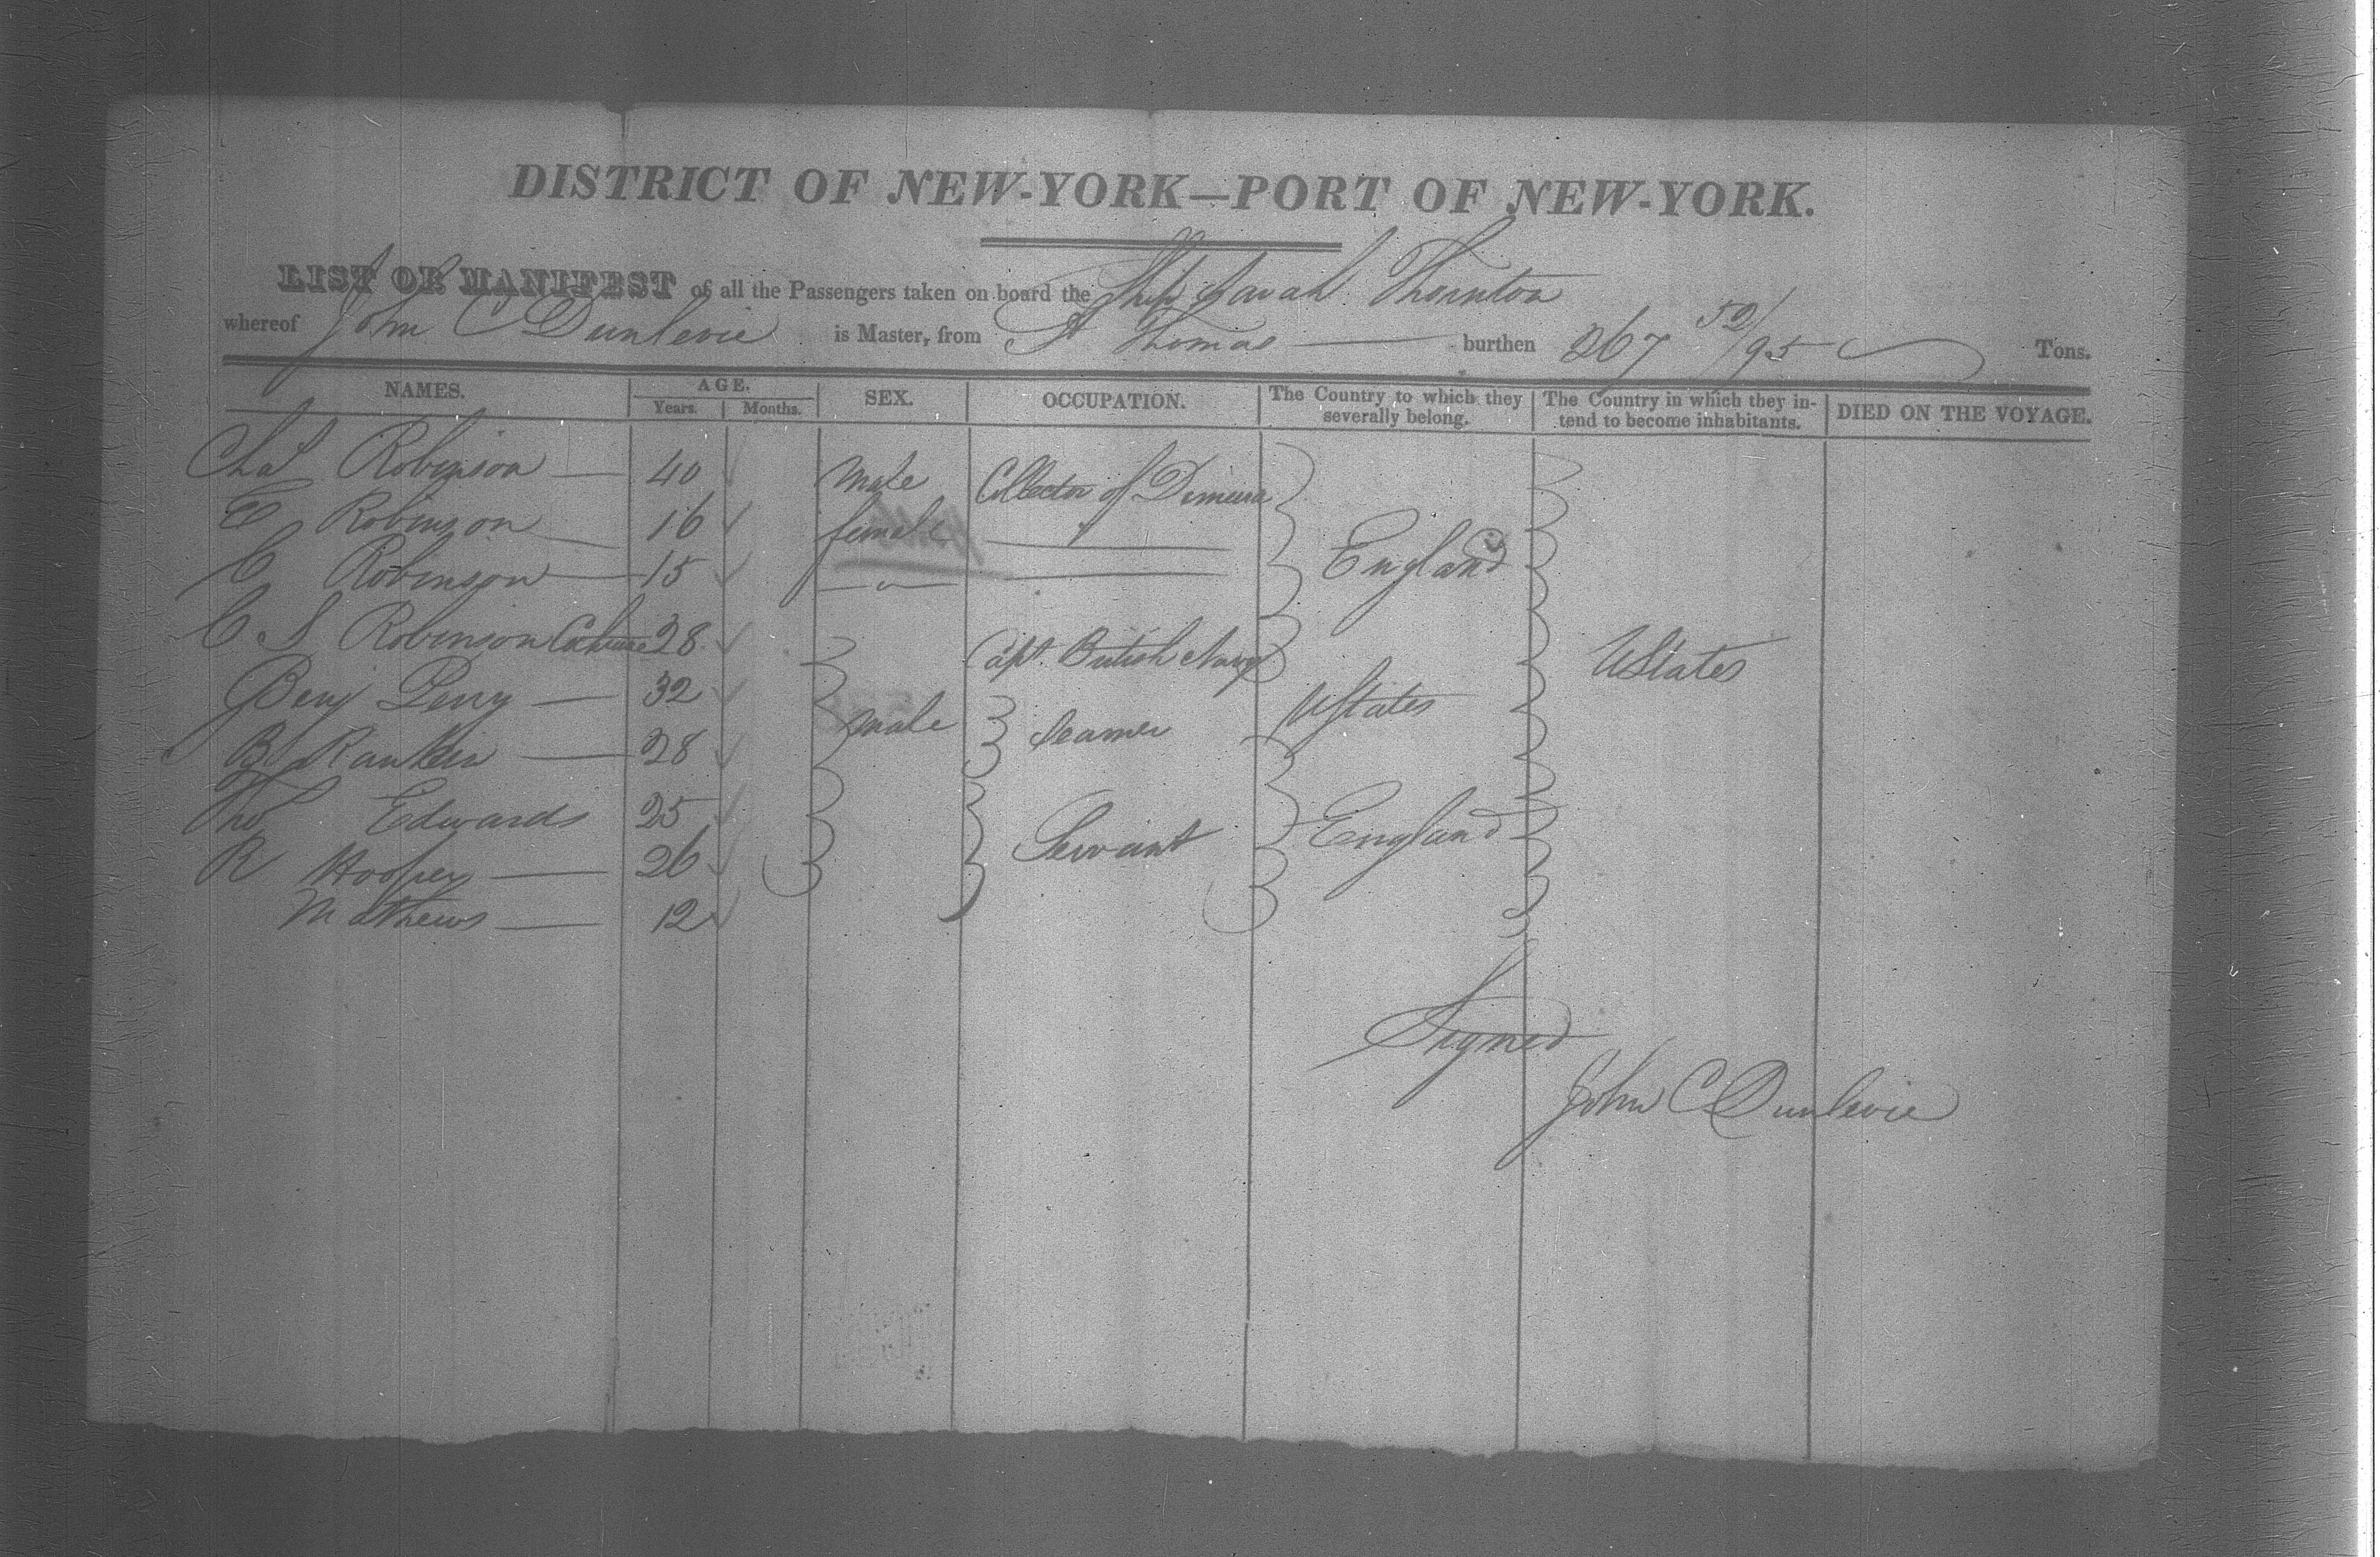 DISTRICT OF NEW-YORK—PORT OF NEW-YORK.
LIST OR MANIFEST of all the Passengers taken on board the Ship Sarah Thornton
whereof John C Dunlevie is Master, from St Thomas burthen 267 52/95 Tons.
NAMES. AGE. Years. Months. SEX. OCCUPATION. The Country to which they severally belong. The Country in which they intend to become inhabitants. DIED ON THE VOYAGE.
Chas Robinson 40 Male Collector of
E Robinson 16 female
C Robinson 15 England
C S Robinson 28 Capt. British Navy UStates
Benj Perry 32 UStates
B Rankin 28 male Seamen
Thos Edwards 25 England
R Hooper 26 Servant
Mathews 12
Signed
John C Dunlevie